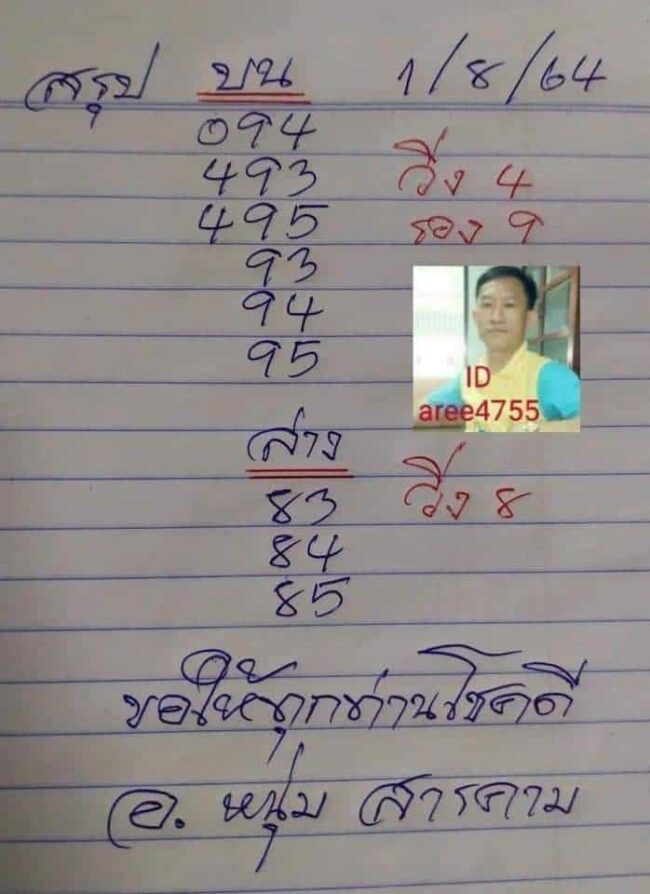 สรุป บน 1/8/64
094
493 วิ่ง 4
495 รอง 9
93
94
95
ID
aree4755
ล่าง
83 วิ่ง 8
84
85
ขอให้ทุกท่านโชคดี
อ. หนุ่ม สารคาม